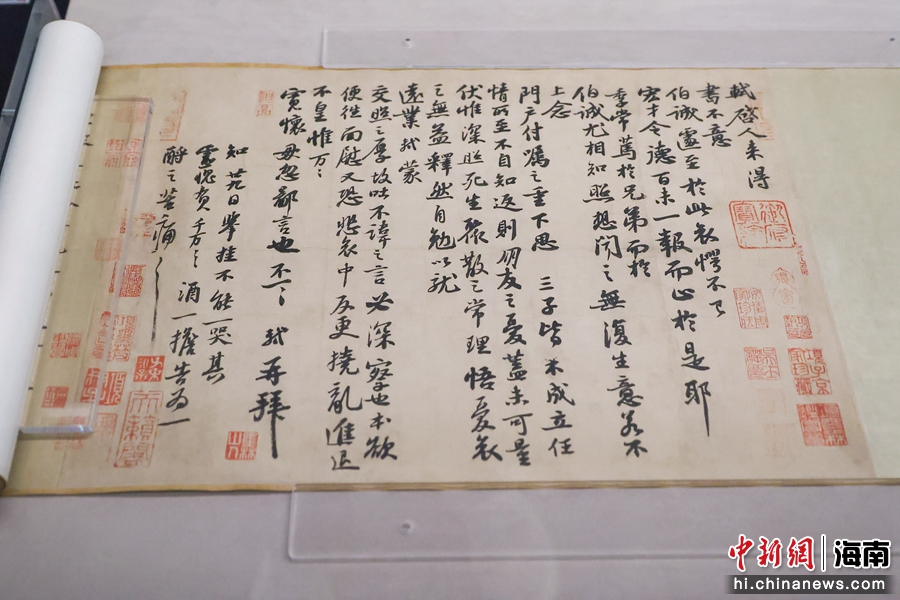 軾啓人来得
書不意
伯誠遽至於此哀愕不已
宏才令德百未一報而止於是耶
季常篤於兄弟而於
伯誠尤相知照想聞之無復生意若不
上念
門户付囑之重下思 三子皆未成立任
情所至不自知返則朋友之憂蓋未可量
伏惟深照死生聚散之常理悟憂哀
之無益釋然自勉以就
遠業軾蒙
交照之厚故吐不諱之言必深察也本欲
便往面慰又恐悲哀中反更撓亂進退
不皇惟万〻
寬懷毋忽鄙言也不一〻 軾再拜
知廿九日舉挂不能一哭其
靈愧負千万〻 酒一擔告為一
酹之苦痛〻〻
中新網 海南
hi.chinanews.com